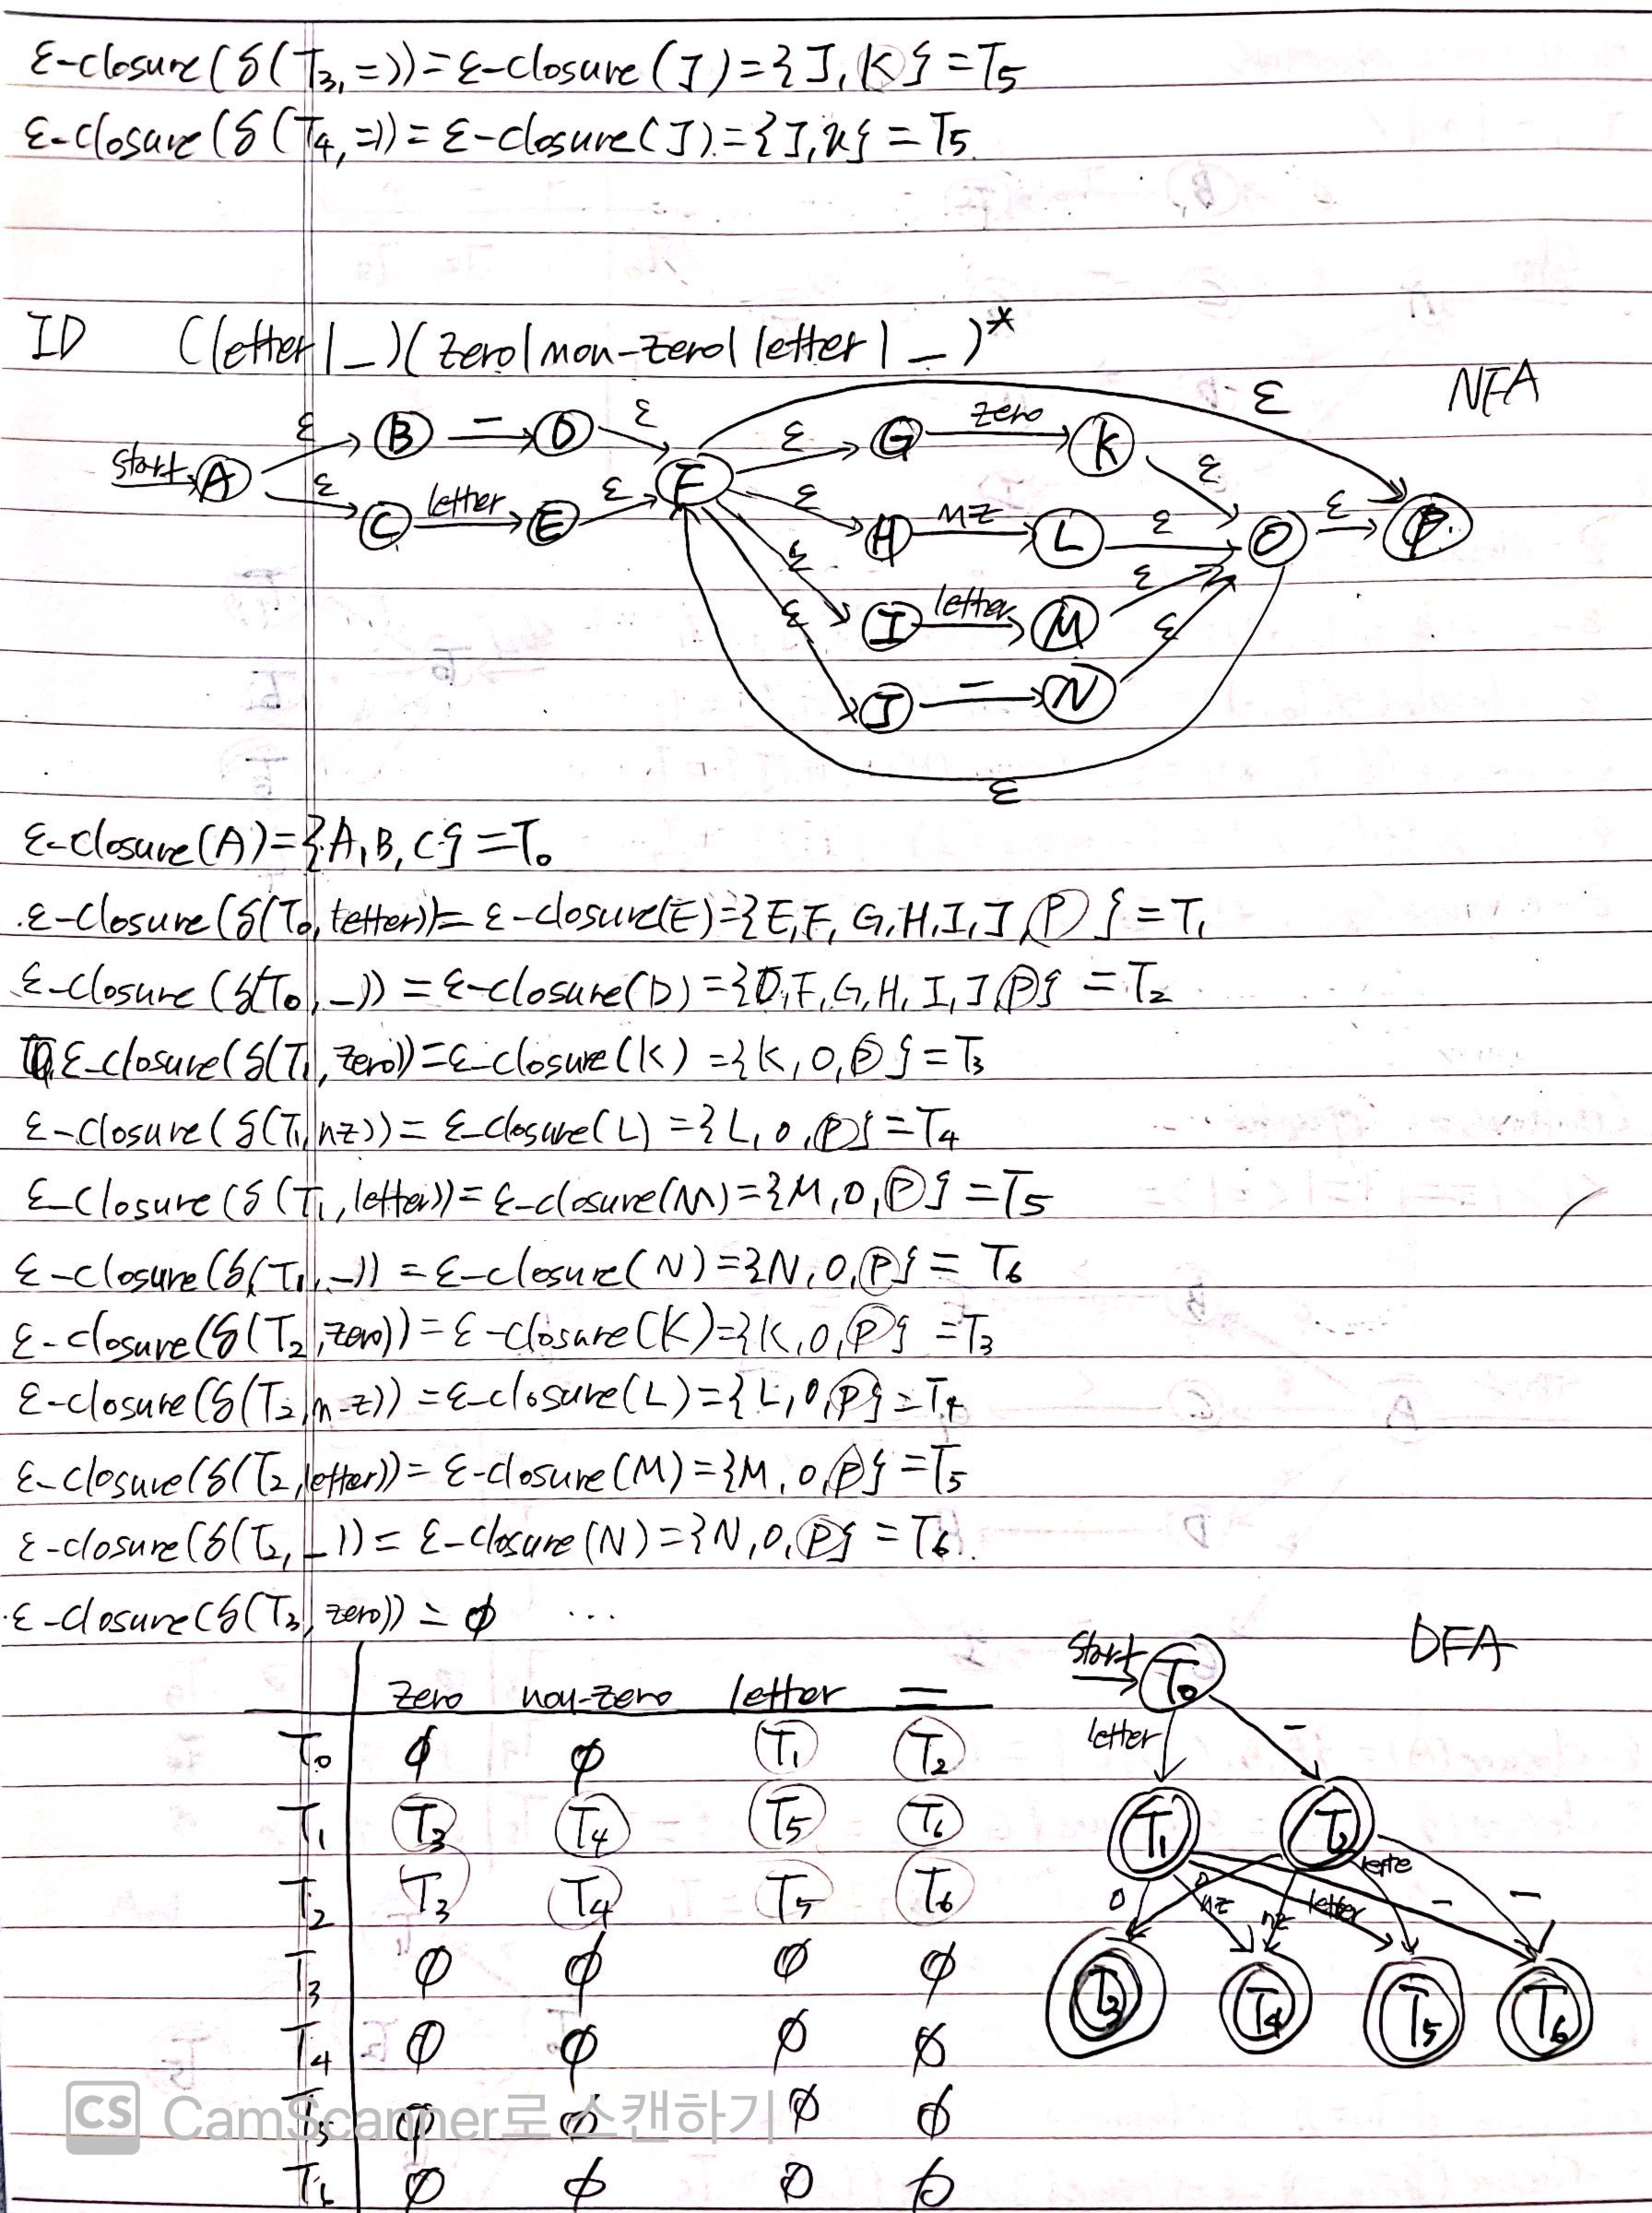 ε-closure(δ(T3,=))=ε-closure(J)={J,K}=T5
ε-closure(δ(T4,=))=ε-closure(J)={J,K}=T5
ID (letter|_)(zero|non-zero|letter|_)*
NFA
start A ε B _ D ε F ε G zero K ε O ε P
ε C letter E ε
ε H nz L ε
ε I letter M ε
ε J _ N ε
ε
ε
ε-closure(A)={A,B,C}=T0
ε-closure(δ(T0,letter))=ε-closure(E)={E,F,G,H,I,J,P}=T1
ε-closure(δ(T0,_))=ε-closure(D)={D,F,G,H,I,J,P}=T2
ε-closure(δ(T1,zero))=ε-closure(K)={K,O,P}=T3
ε-closure(δ(T1,nz))=ε-closure(L)={L,O,P}=T4
ε-closure(δ(T1,letter))=ε-closure(M)={M,O,P}=T5
ε-closure(δ(T1,_))=ε-closure(N)={N,O,P}=T6
ε-closure(δ(T2,zero))=ε-closure(K)={K,O,P}=T3
ε-closure(δ(T2,n-z))=ε-closure(L)={L,O,P}=T4
ε-closure(δ(T2,letter))=ε-closure(M)={M,O,P}=T5
ε-closure(δ(T2,_))=ε-closure(N)={N,O,P}=T6
ε-closure(δ(T3,zero))=ϕ ...
zero non-zero letter _
T0 ϕ ϕ T1 T2
T1 T3 T4 T5 T6
T2 T3 T4 T5 T6
T3 ϕ ϕ ϕ ϕ
T4 ϕ ϕ ϕ ϕ
T5 ϕ ϕ ϕ ϕ
T6 ϕ ϕ ϕ ϕ
DFA
start T0
letter _
T1 T2
0 nz nz letter lette _ _
T3 T4 T5 T6
CS CamScanner로 스캔하기